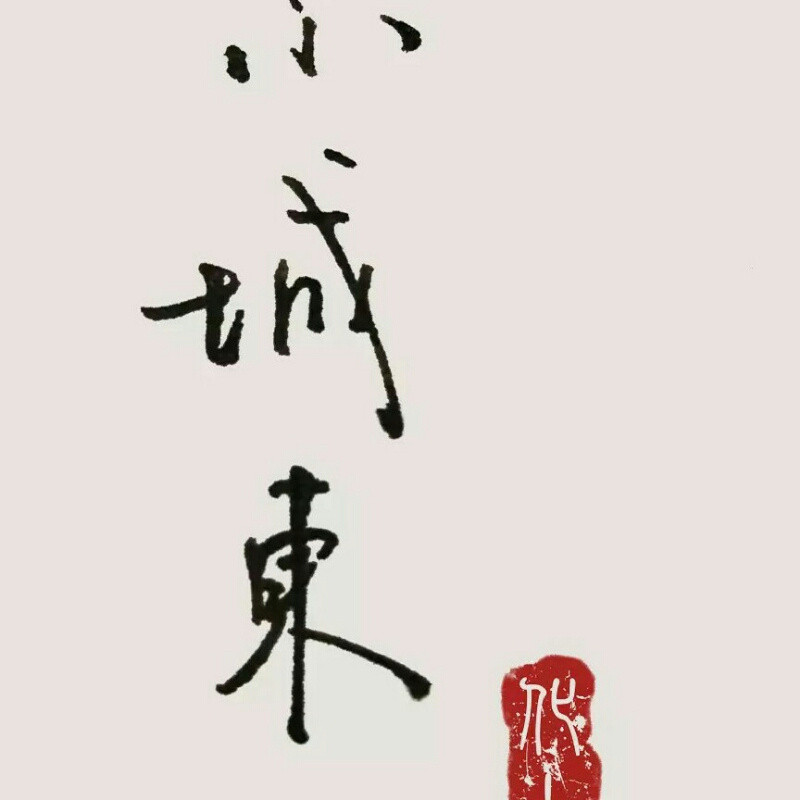 小城東